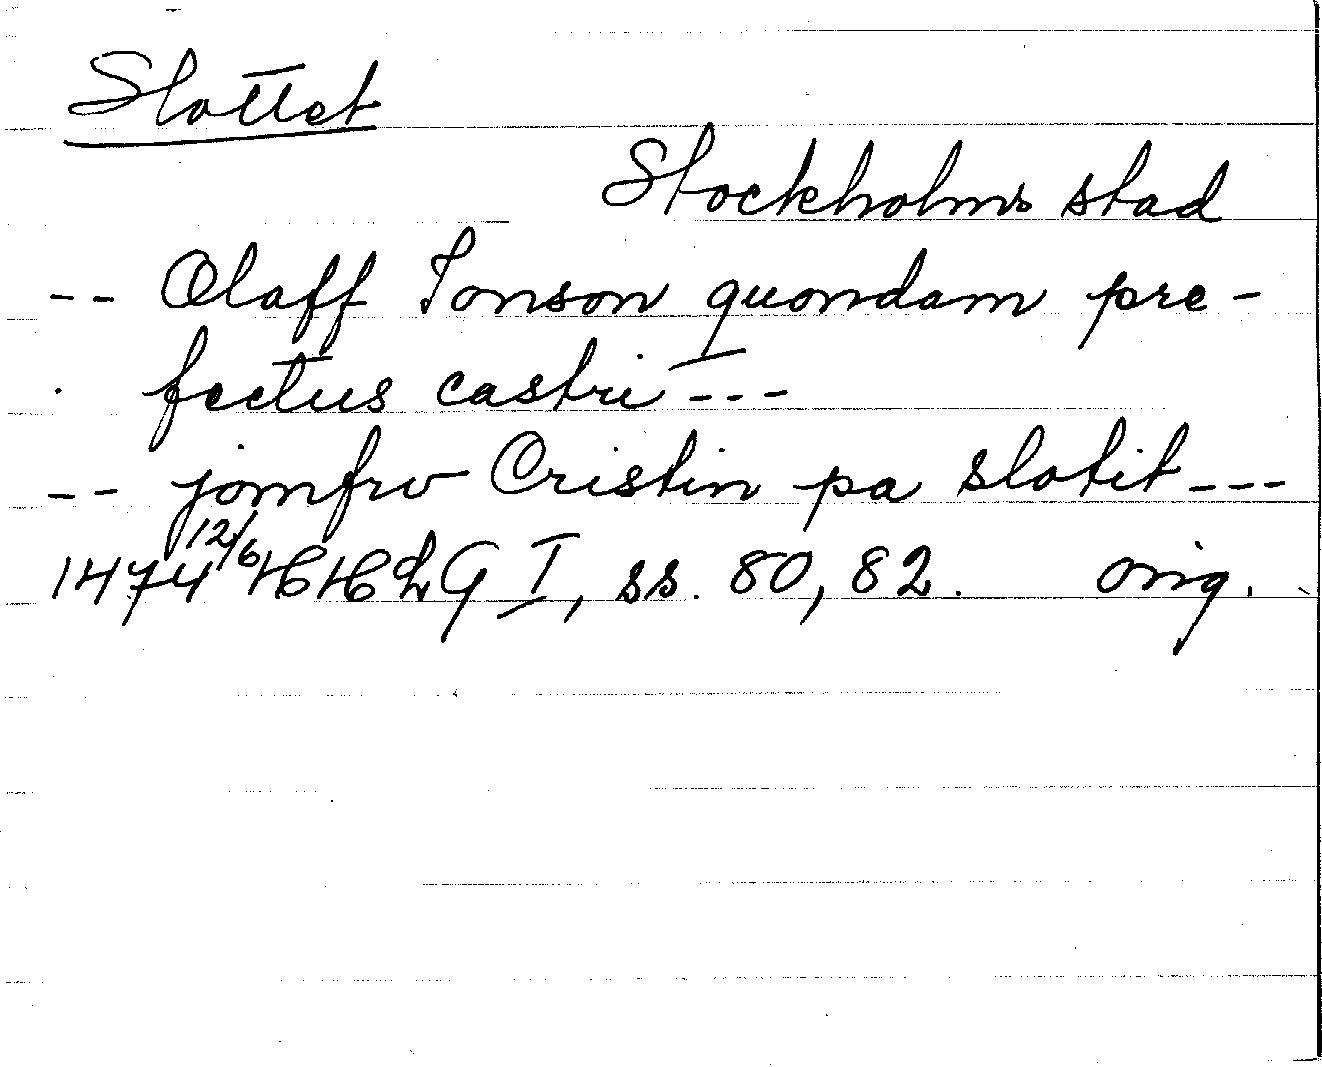 Slottet
Stockholms stad
-- Olaff Jonson quondam pre-
fectus castri ---
-- jomfrv Cristin pa slotit ---
1474 12/6 HHLG I, ss. 80, 82. orig.